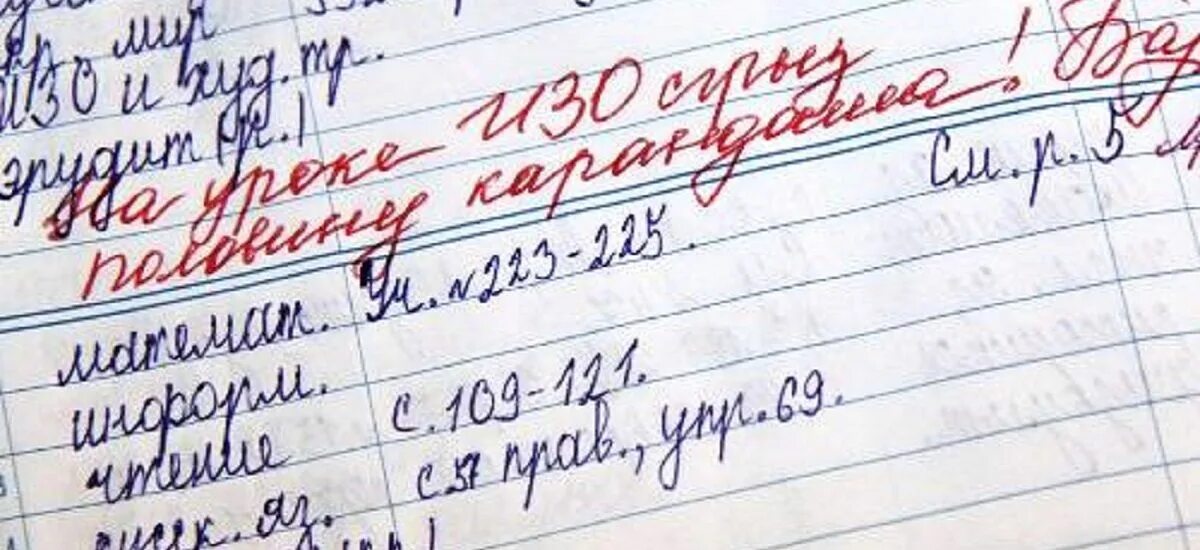 мир
ИЗО и худ. тр.
эрудит гр. 1
На уроке ИЗО сгрыз
половину карандаша!
См. р. 5
математ. Уч. №223-225.
информ.
чтение с. 109-121.
яз. с 57 прав., упр. 69.